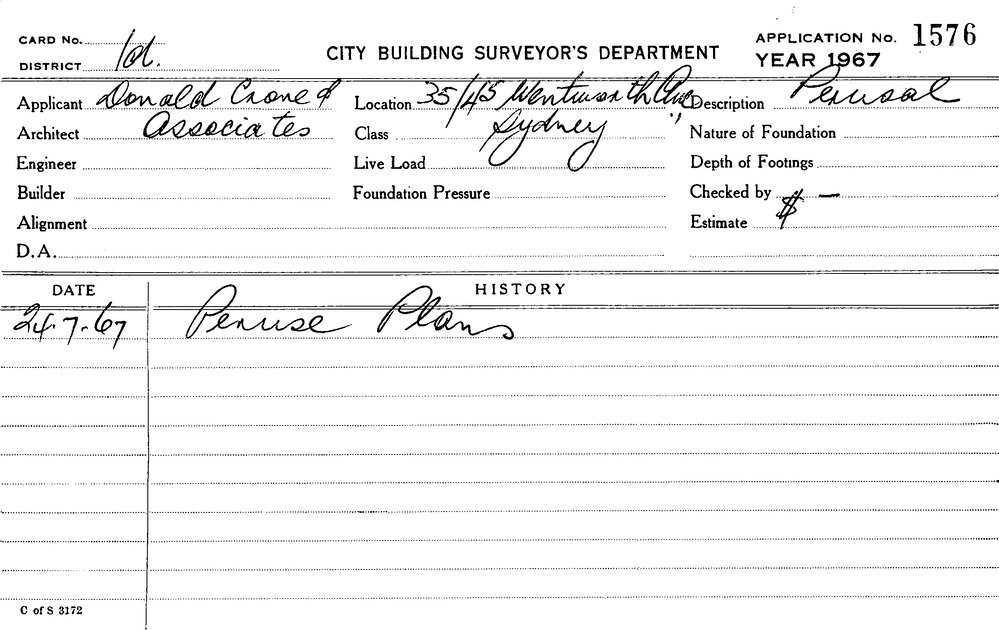 CARD No.
DISTRICT 1d.
CITY BUILDING SURVEYOR'S DEPARTMENT
APPLICATION No. 1576
YEAR 1967
Applicant Donald Crone &
Architect Associates
Engineer
Builder
Alignment
D.A.
Location 35/45 Wentworth Ave
Class Sydney
Live Load
Foundation Pressure
Description Perusal
Nature of Foundation "
Depth of Footings
Checked by
Estimate $ —
DATE HISTORY
24.7.67 Peruse Plans
C of S 3172